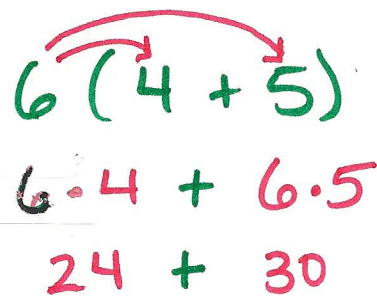 6 (4 + 5)
6 · 4 + 6 · 5
24 + 30